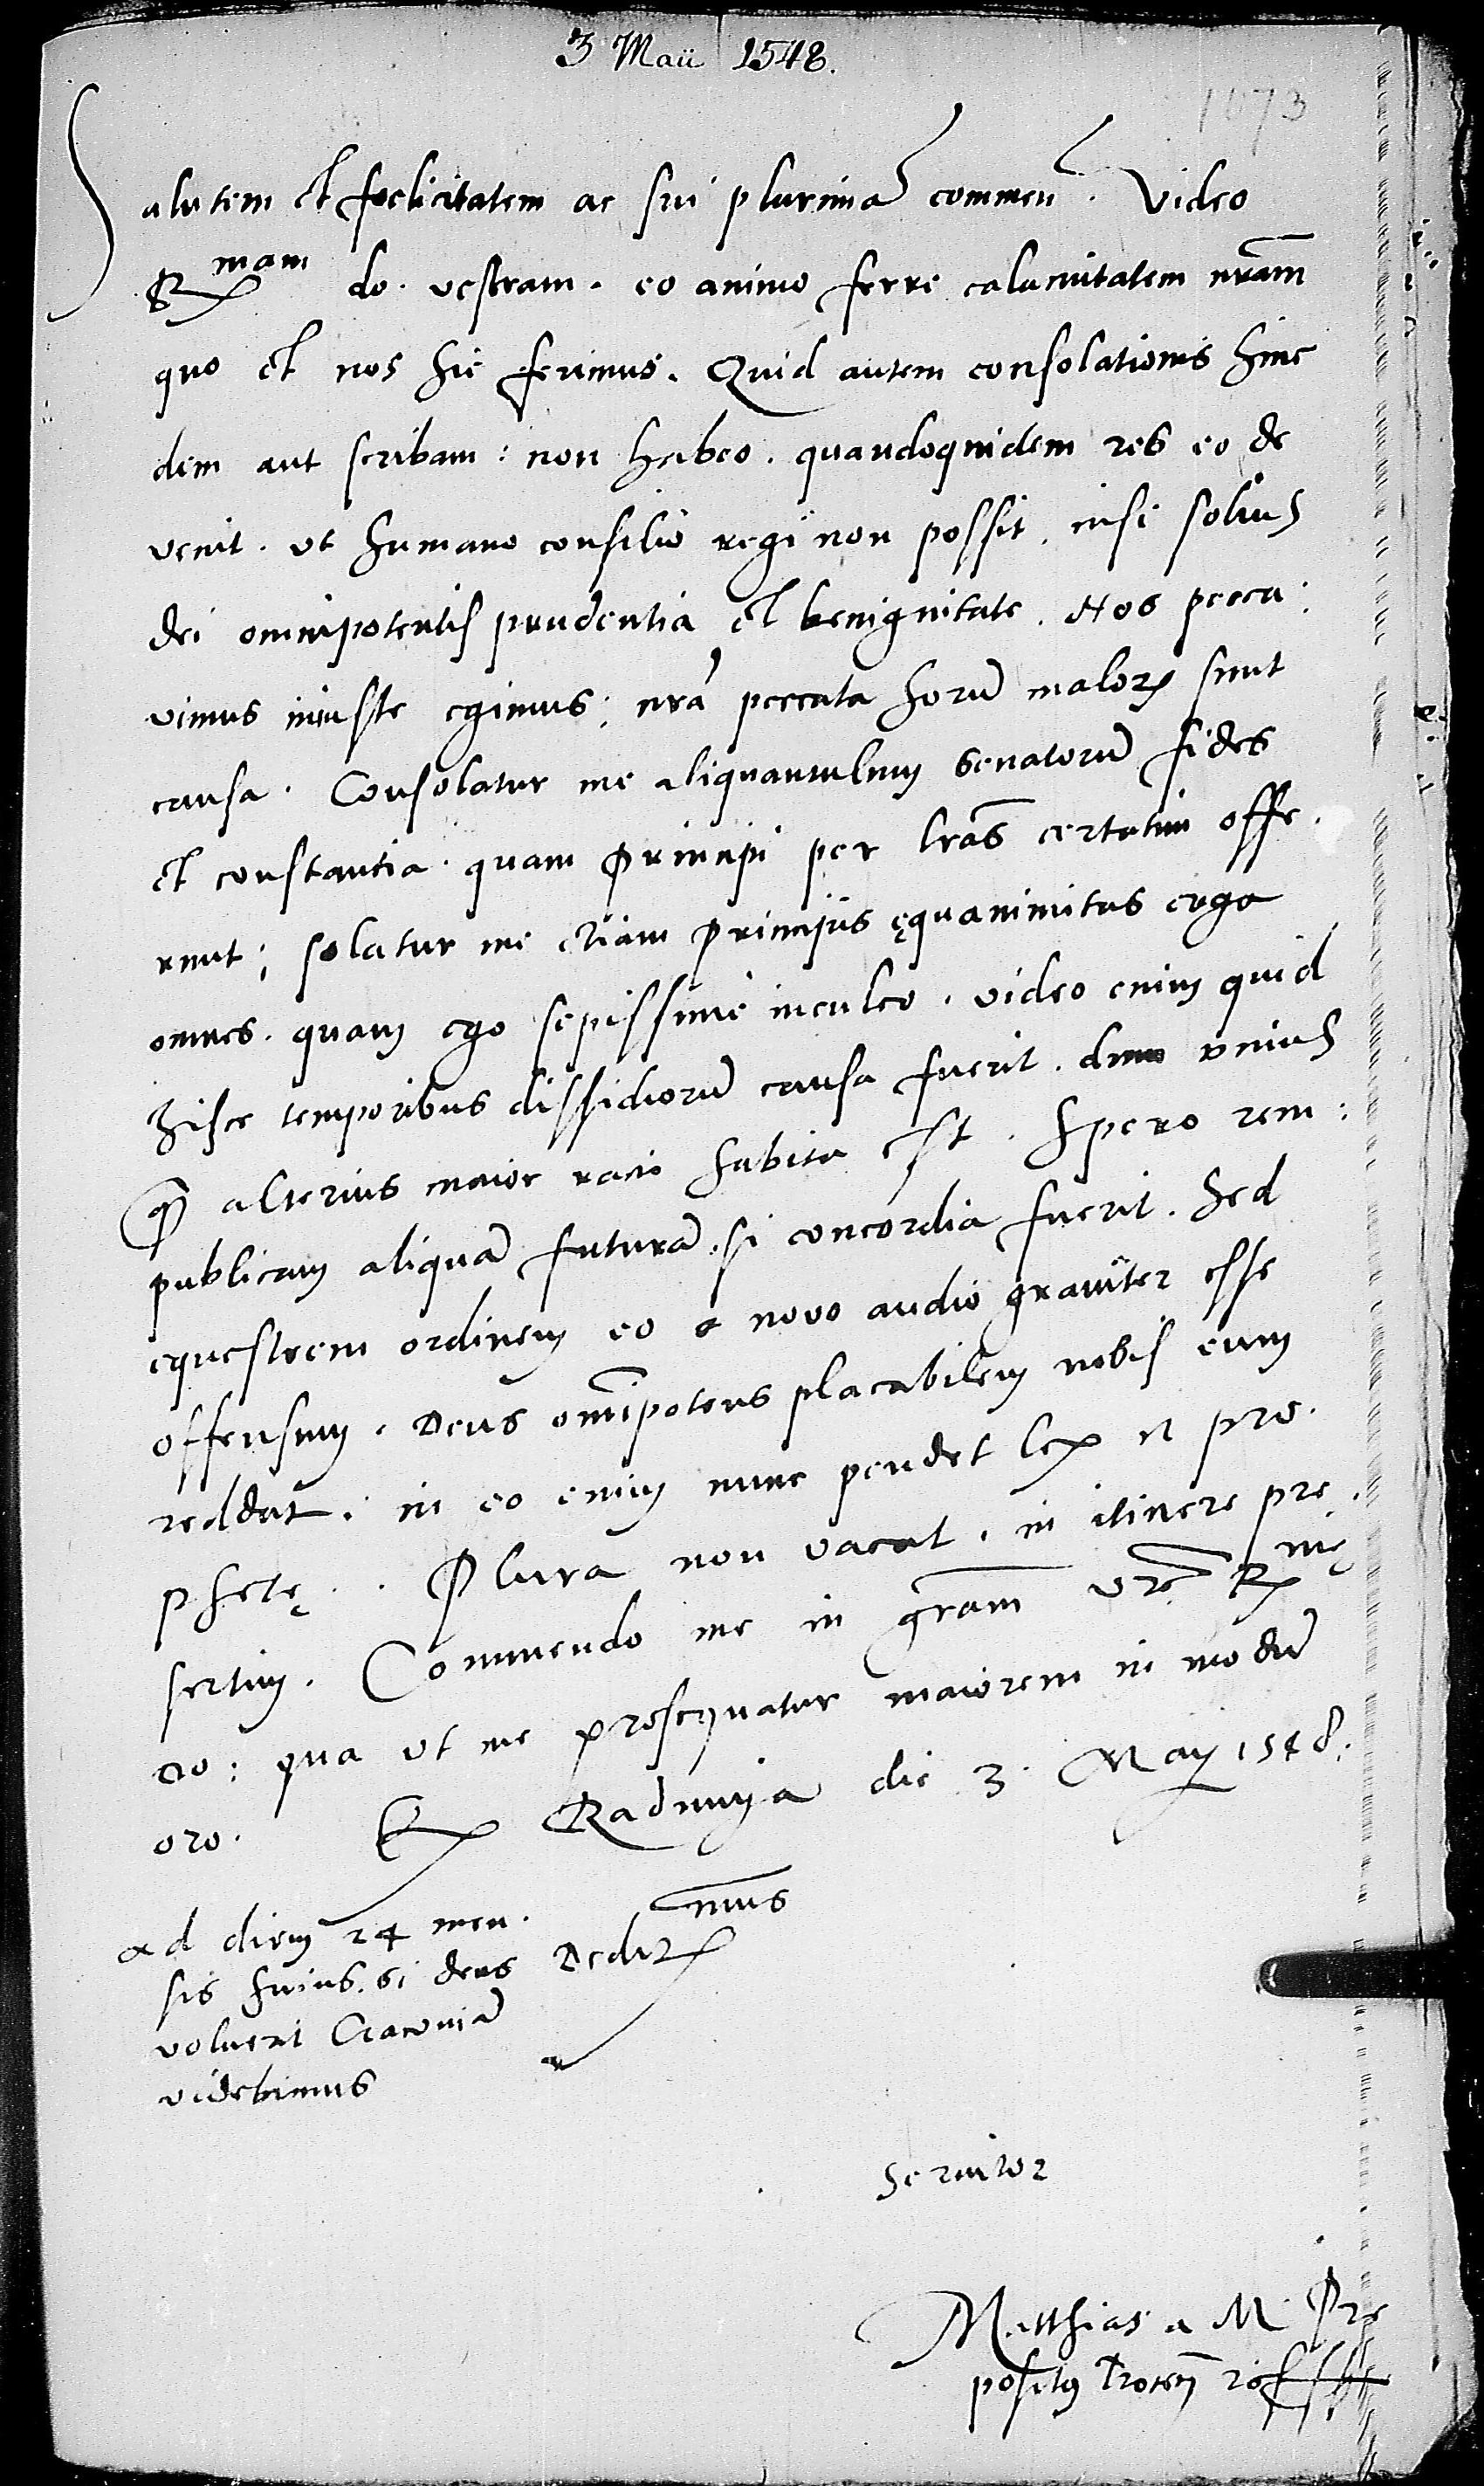 3 Maii 1548.
1073
Salutem et foelicitatem ac sui plurima commen. Video
Rx mam do. vestram. eo animo ferre calamitatem nram
quo et nos hic ferimus. Quid autem consolationis hinc
dem aut scribam: non habeo. quandoquidem res eo de
venit. ut humano consilio regi non possit. nisi solius
dei omnipotentis prudentia et benignitate. Nos pecca:
vimus iniuste egimus: nra peccata horu malorum sunt
causa. Consolatur me aliquantulum senatoru fides
et constantia. quam Principi per lras certatim offe.
runt; solatur me etiam principis ęquanimitas erga
omnes. quam ego sepissime inculco. video enim quid
hisce temporibus dissidioru causa fuerit. dum unius
quam alterius maior racio habita est. Spero rem:
publicam aliqua futura. si concordia fuerit. Sed
equestrem ordinem eo a novo audio graviter esse
offensum. Deus omipotens placabilem nobis eum
reddat. in eo enim nunc pendet lex et pro.
phetę. Plura non vacat. in itinere prę.
sertim. Commendo me in gram vrę Rx mę
do: qua ut me prosequatur maiorem in modu
oro. Ex Radunija die 3. Maij 1548.
ad diem 24 men.
sis huius. si deus
voluerit Cracovia
videbimus
Deditx mus
Servitor
Matthias a M. Pre
positus Trocen